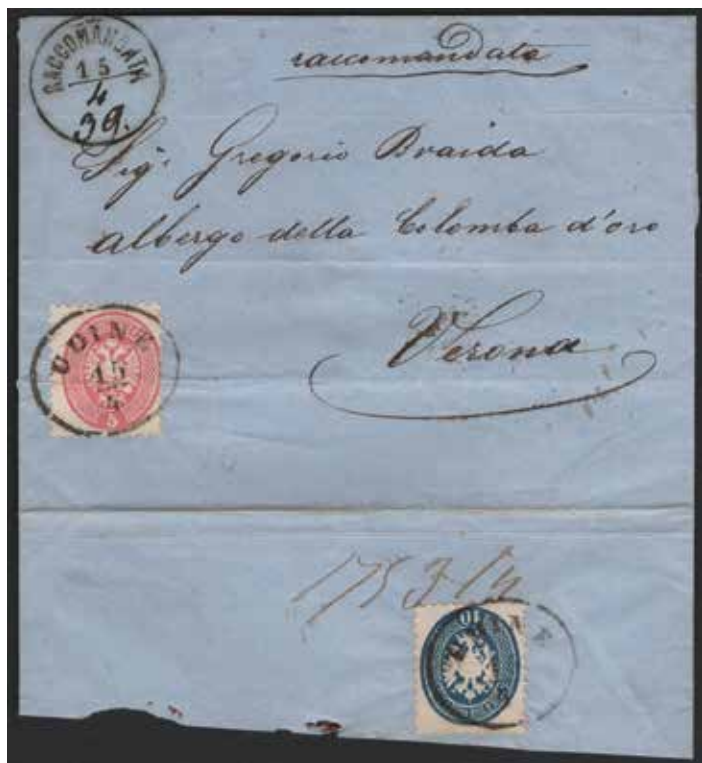 RACCOMANDATA
15
4
39.
raccomandata
Sigr. Gregorio Braida
albergo della Colomba d'oro
Verona
UDINE
15
4
5
10
UDINE